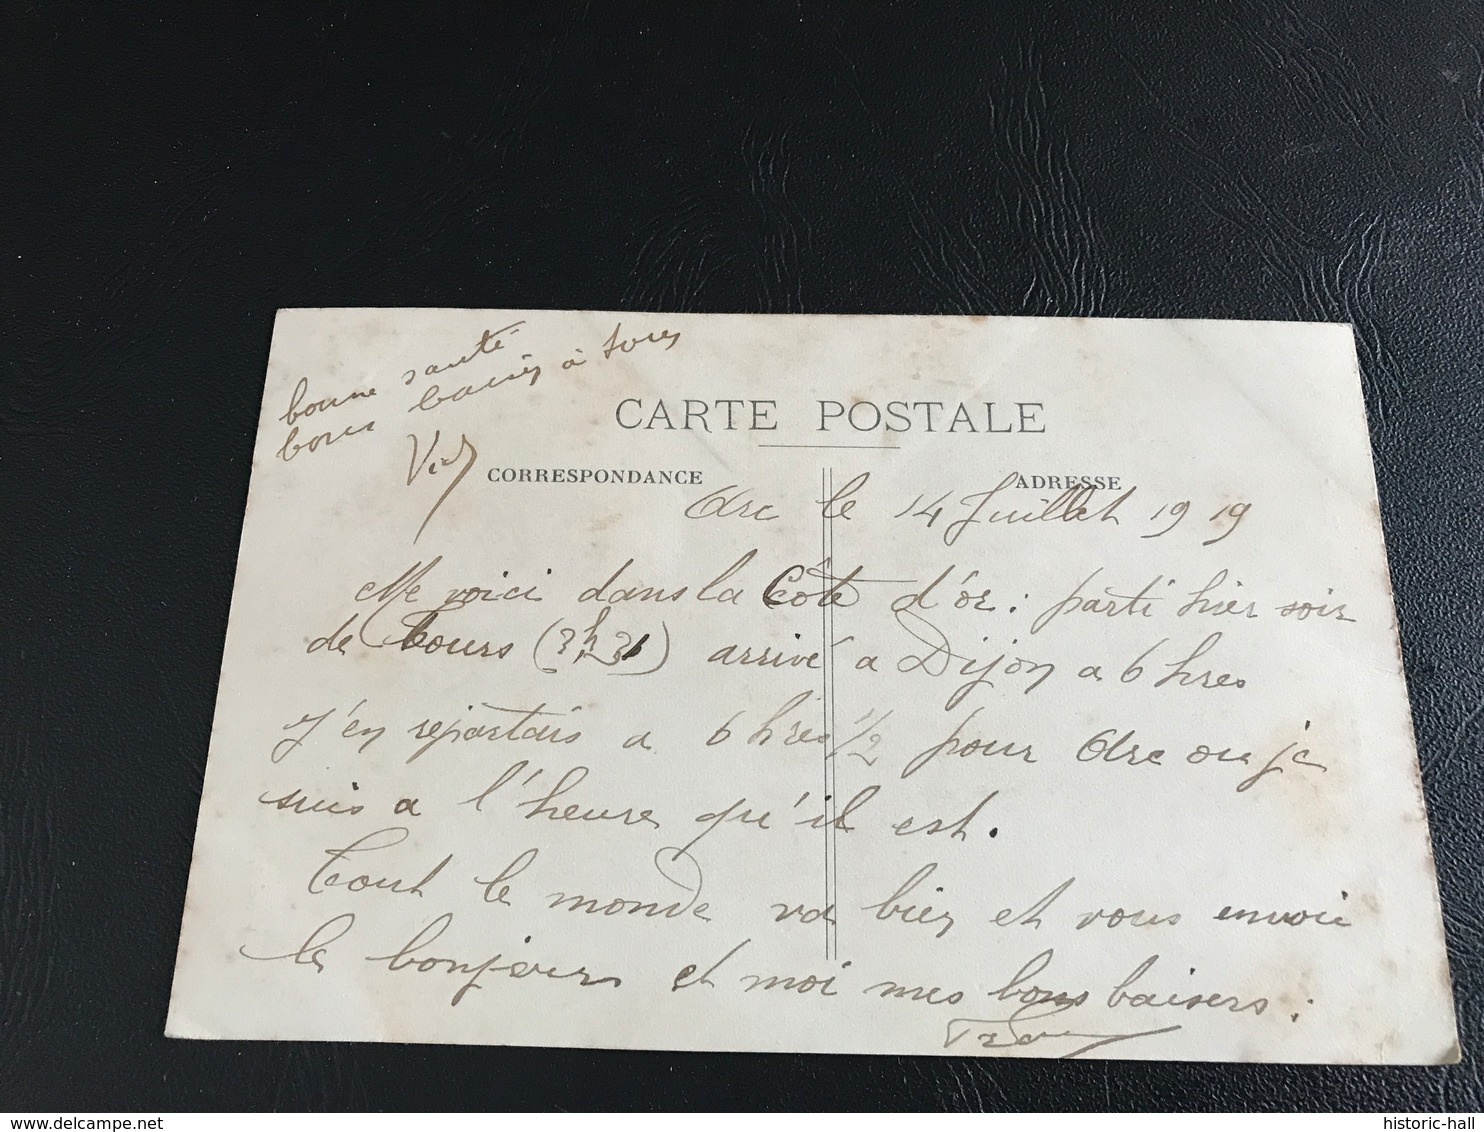 bonne santé
bons baisers à tous
CARTE POSTALE
CORRESPONDANCE
ADRESSE
Arc le 14 Juillet 1919
Me voici dans la Côte d'or : parti hier soir
de Tours (3h31) arrivé a Dijon a 6 hres
j'en repartais a 6 hres 1/2 pour Arc ou je
suis a l'heure qu'il est.
Tout le monde va bien et vous envoie
le bonjour et moi mes bons baisers :
historic-hall